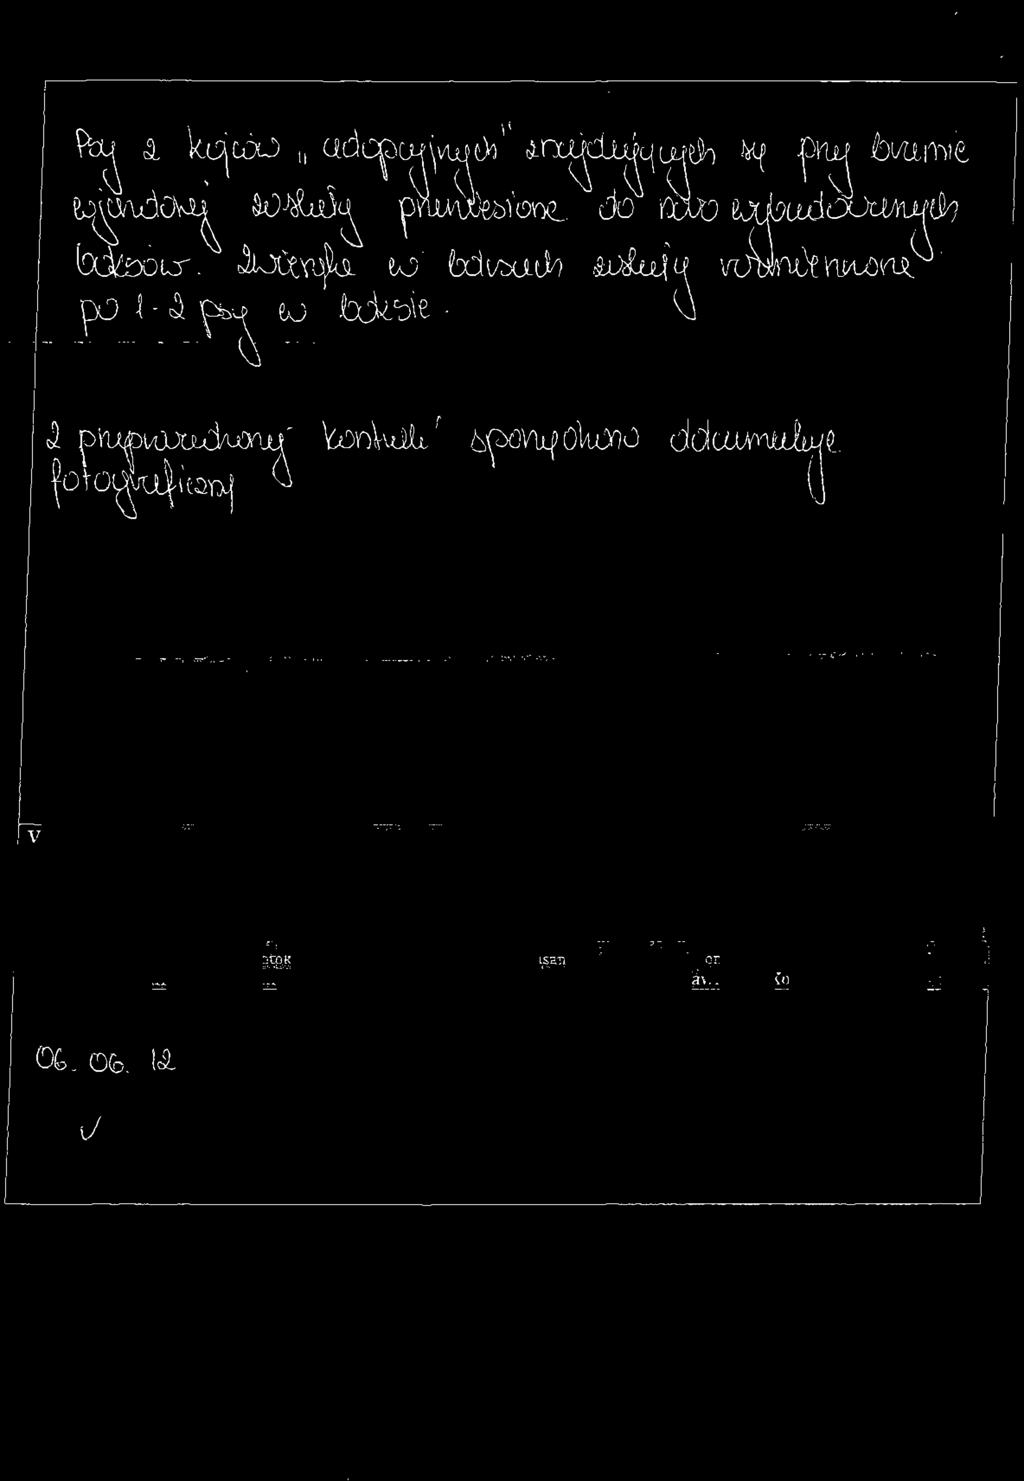 Psy z kojców „adopcyjnych" znajdujących się przy bramie
wjazdowej zostały przeniesione do nowo wybudowanych
boksów. Zwierzęta w boksach zostały rozmieszczone
po 1-2 psy w boksie.
Z przeprowadzonej kontroli sporządzono dokumentację
fotograficzną
V
06.06.12